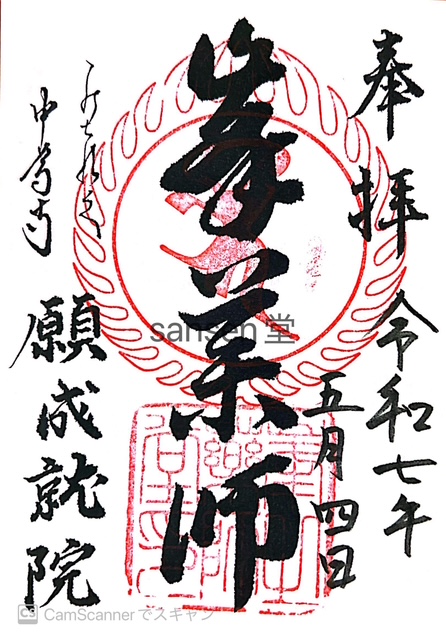 奉拝 令和七年
五月四日
峯薬師
中尊寺
願成就院
sansen 堂
CS CamScanner でスキャン